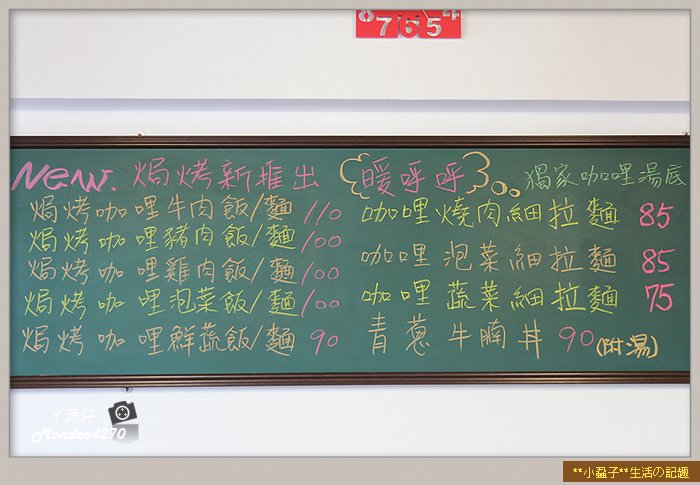 8765 4
New. 焗烤新推出
焗烤咖哩牛肉飯/麵 110
焗烤咖哩豬肉飯/麵 100
焗烤咖哩雞肉飯/麵 100
焗烤咖哩泡菜飯/麵 100
焗烤咖哩鮮蔬飯/麵 90
暖呼呼 獨家咖哩湯底
咖哩燒肉細拉麵 85
咖哩泡菜細拉麵 85
咖哩蔬菜細拉麵 75
青蔥牛腩丼 90 (附湯)
｜丫源仔
Mondeo4270
**小蝨子**生活の記趣